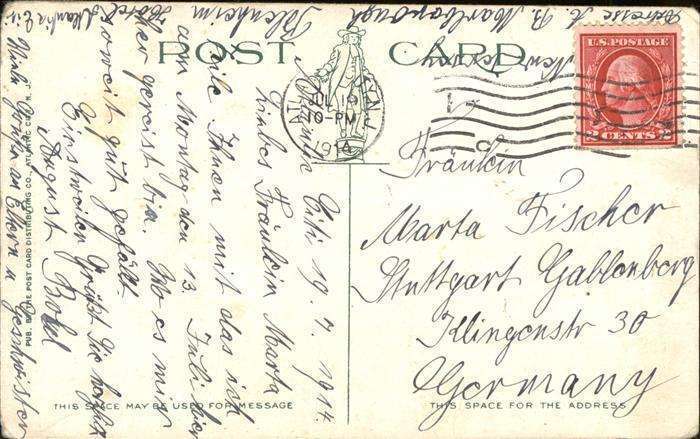 POST CARD
U.S. POSTAGE
2 CENTS 2
JUL 19
10-PM
1914
Fräulein
Marta Fischer
Stuttgart Gablenberg
Klingenstr 30
Germany
THIS SPACE FOR THE ADDRESS
Atlantic City 19. 7. 1914.
Liebes Fräulein Marta
Teile Ihnen mit das ich
am Montag den 13. Juli hier
her gereist bin. Wo es mir
soweit gut gefällt.
Einstweilen Grüßt Sie
August Bokel
Eltern u Geschwister
Adresse A. B. Marlborough
Blenheim
Hotel
New Jersey
THIS SPACE MAY BE USED FOR MESSAGE
PUB. BY THE POST CARD DISTRIBUTING CO., ATLANTIC CITY, N. J.